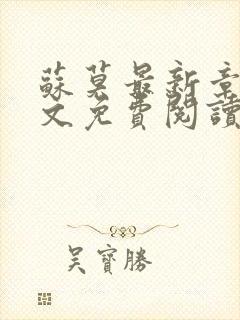 蘇莫最新章
文免費閱讀
吴寶勝